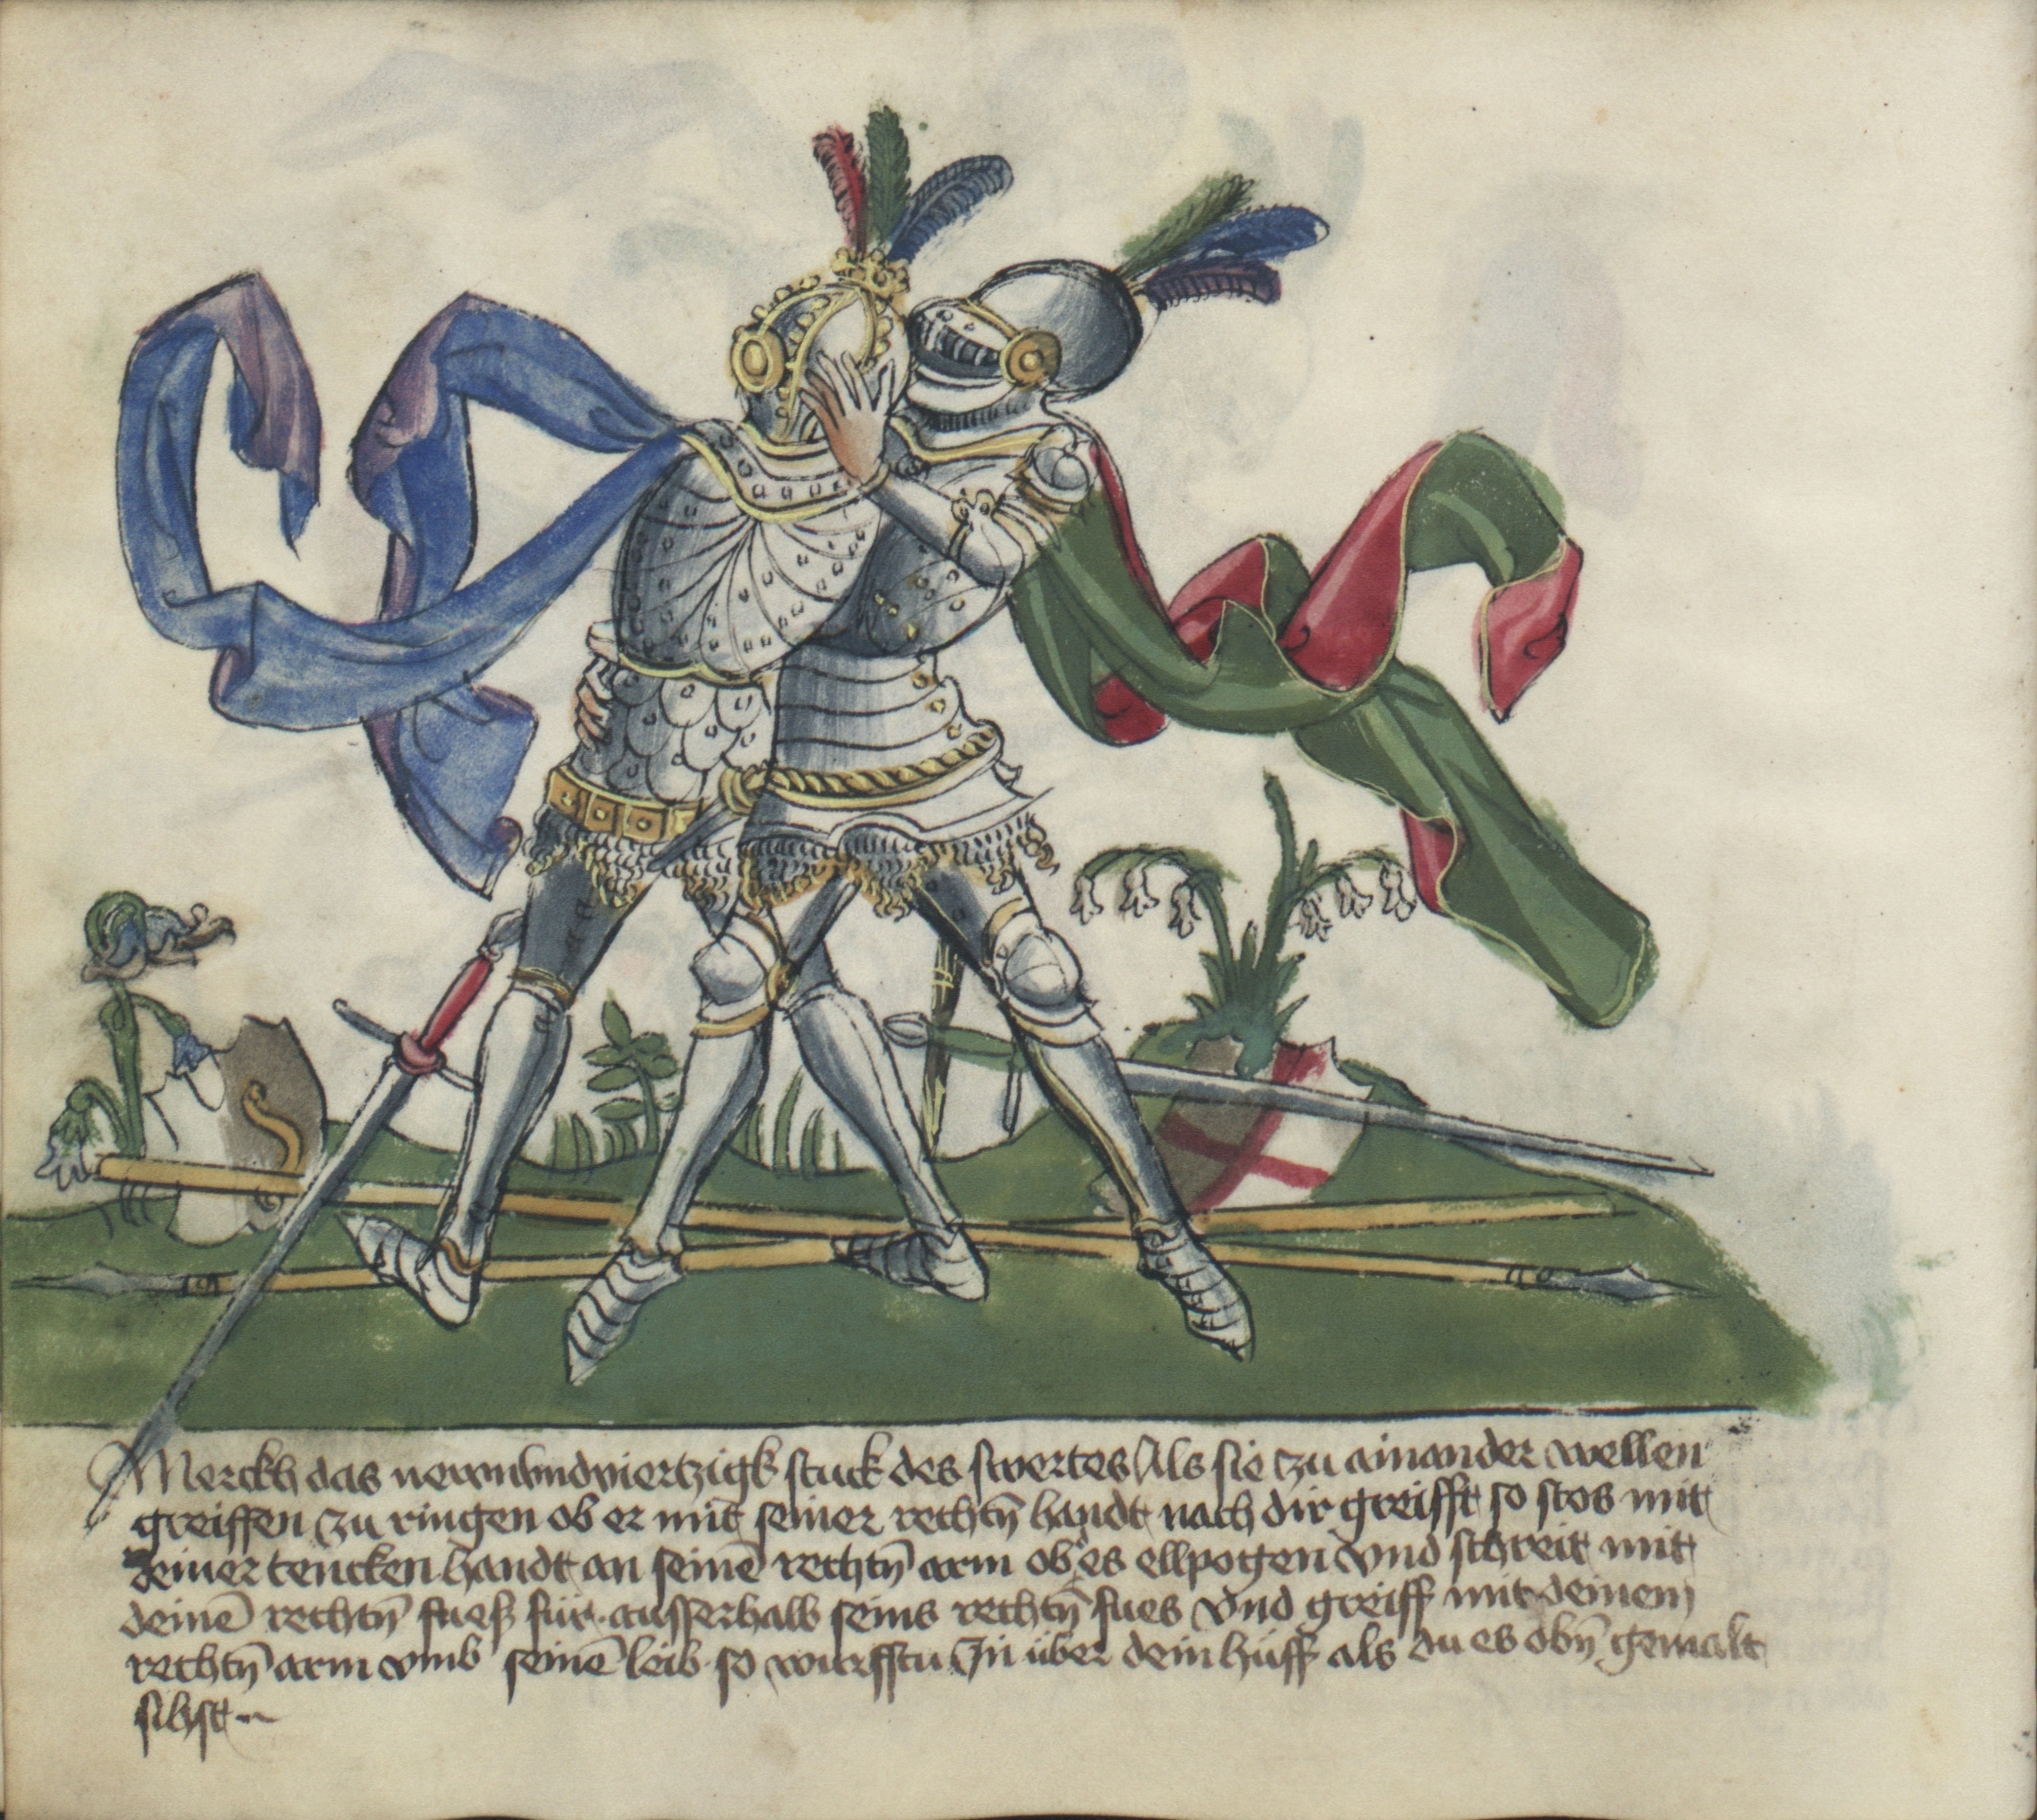 Merckh das newnvndviertzigk stuck des swertes Als sie zu ainander wellen
greiffen zu ringen ob er mit seiner rechtn̄ handt nach dir greifft so stos mit
deiner tencken handt an seinē rechtn̄ arm ob es ellpogen vnd schreit mit
deinē rechtn̄ fuess für ausserhalb seins rechtn̄ fues vnd greiff mit deinem
rechtn̄ arm vmb seinē leib so wurfftu In über dein huff als du es obn̄ gemalt
sihst